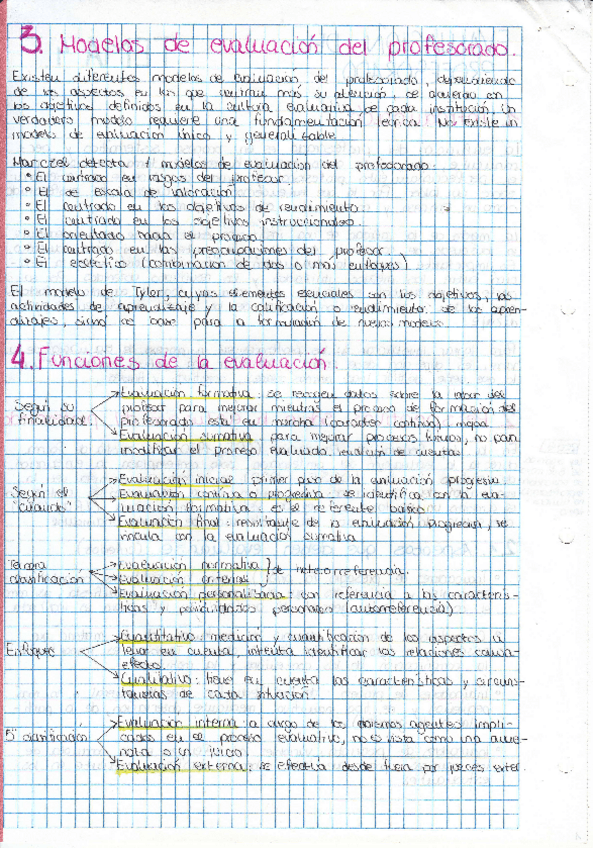 3. Modelos de evaluación del profesorado.
Existen diferentes modelos de evaluación del profesorado, dependiendo
de los aspectos en los que centran más su atención, de acuerdo con
los objetivos definidos en la cultura evaluativa de cada institución. Un
verdadero modelo requiere una fundamentación teórica. No existe un
modelo de evaluación único y generalizable
detecta modelos de evaluación del profesorado:
° El centrado en rasgos del profesor.
° El de escala de valoración
° El centrado en los objetivos de rendimiento.
° El centrado en los objetivos instruccionales.
° El orientado hacia el proceso.
° El centrado en las preocupaciones del profesor.
° El ecléctico (combinación de dos o más enfoques).
El modelo de Tyler, cuyos elementos esenciales son los objetivos, las
actividades de aprendizaje y la calificación o rendimiento de los apren-
dizajes, de base para la formulación de nuevos modelos.
4. Funciones de la evaluación.
Según su finalidad:
Evaluación formativa: se recogen datos sobre la labor del
profesor para mejorar mientras el proceso de formación del
profesorado está en marcha (carácter continuo). mejora
Evaluación sumativa para mejorar procesos futuros, no para
modificar el proceso evaluado. rendición de cuentas
Según el "cuando"
Evaluación inicial: primer paso de la evaluación progresiva
Evaluación continua o progresiva: se identifica con la eva-
luación formativa. es el referente básico
Evaluación final: de la evaluación progresiva, se
vincula con la evaluación sumativa
Tercera clasificación
Evaluación normativa } de heterorreferencia.
Evaluación criterial
Evaluación personalizada: con referencia a las caracterís-
ticas y posibilidades personales (autorreferencia)
Enfoques
Cuantitativo: medición y cuantificación de los aspectos a
tener en cuenta, intenta identificar las relaciones causa-
efecto.
Cualitativo: tiene en cuenta las características y circuns-
tancias de cada situación.
5ª clasificación
Evaluación interna: a cargo de los mismos agentes impli-
cados en el proceso evaluativo, no es vista como una ame-
naza o un juicio.
Evaluación externa: se efectúa desde fuera por jueces exter.